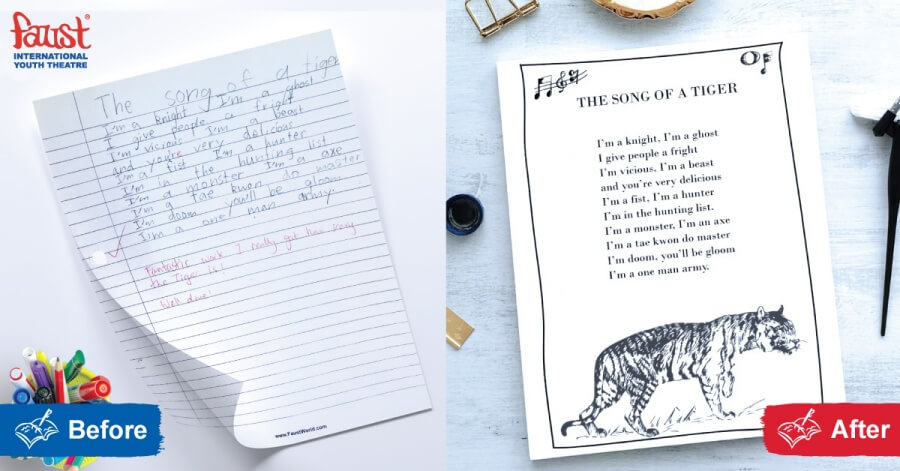 Faust®
INTERNATIONAL
YOUTH THEATRE
The song of a tiger
I'm a knight I'm a ghost
I give people a fright
I'm vicious I'm a beast
And you're very delicious
I'm a fist I'm a hunter
I'm in the hunting list
I'm a monster I'm a axe
I'm a tae kwon do master
I'm doom you'll be gloom
I'm a one man army.
Fantastic work I really got how
the Tiger is!
Well done!
www.FaustWorld.com
Before
THE SONG OF A TIGER
I'm a knight, I'm a ghost
I give people a fright
I'm vicious, I'm a beast
and you're very delicious
I'm a fist, I'm a hunter
I'm in the hunting list.
I'm a monster, I'm an axe
I'm a tae kwon do master
I'm doom, you'll be gloom
I'm a one man army.
After